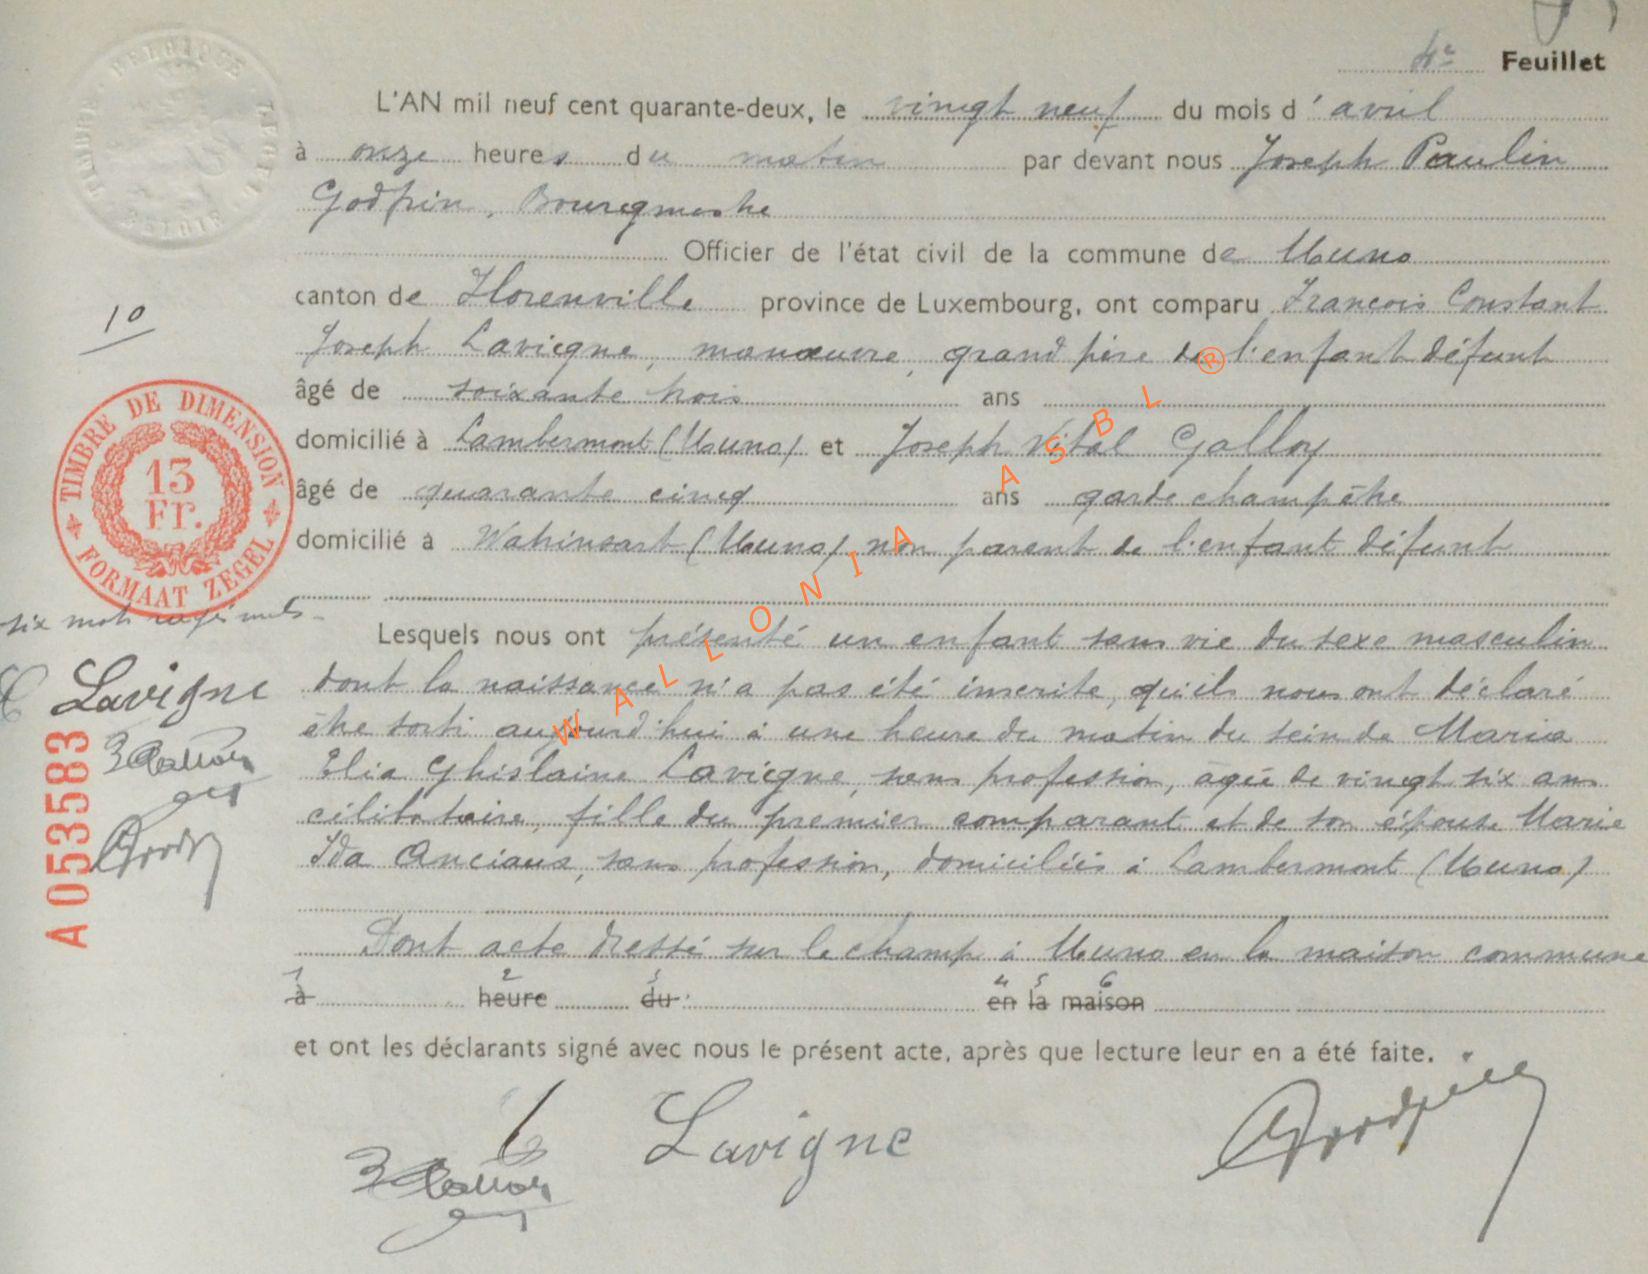 4e Feuillet
L'AN mil neuf cent quarante-deux, le vingt neuf du mois d'avril
à onze heures du matin par devant nous Joseph Paulin
Godfrin, Bourgmestre
Officier de l'état civil de la commune de Muno
canton de Florenville province de Luxembourg, ont comparu François Constant
Joseph Lavigne, manœuvre, grand père de l'enfant défunt
âgé de soixante trois ans
domicilié à Lambermont (Muno) et Joseph Vital Golloy
âgé de quarante cinq ans garde champêtre
domicilié à Watrinsart (Muno) non parent de l'enfant défunt
Lesquels nous ont présenté un enfant sans vie du sexe masculin
dont la naissance n'a pas été inscrite, qu'ils nous ont déclaré
être sorti aujourd'hui à une heure du matin du sein de Maria
Elia Ghislaine Lavigne, sans profession, âgée de vingt six ans
célibataire, fille du premier comparant et de son épouse Marie
Ida Anciaux, sans profession, domiciliés à Lambermont (Muno)
Dont acte dressé sur le champ à Muno en la maison commune
1 2 3 4 5 6
à heure du en la maison
et ont les déclarants signé avec nous le présent acte, après que lecture leur en a été faite.
Lavigne
10
BELGIQUE
BELGIE
TIMBRE DE DIMENSION
13
Fr.
FORMAAT ZEGEL
six mots
Lavigne
A 053583
WALLONIA ASBL ®